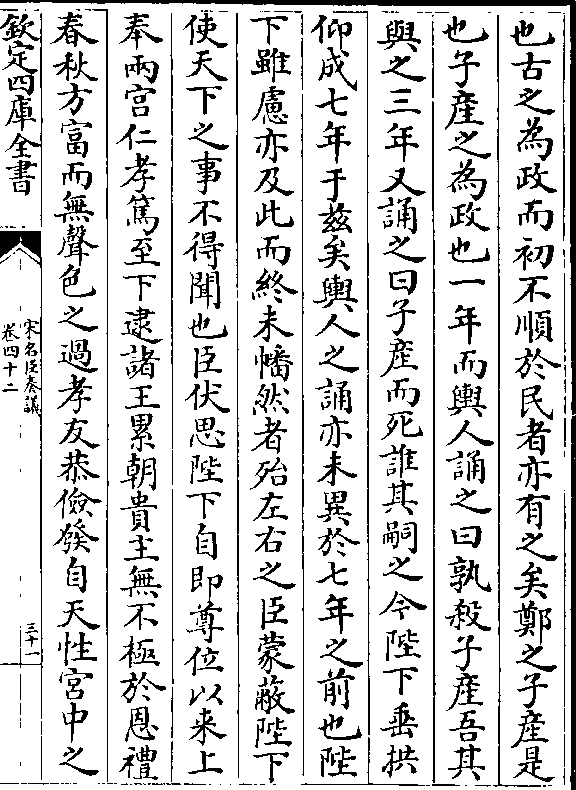 也古之為政而初不順於民者亦有之矣鄭之子產是
也子產之為政也一年而輿人誦之曰孰殺子產吾其
與之三年又誦之曰子產而死誰其嗣之今陛下垂拱
仰成七年于茲矣輿人之誦亦未異於七年之前也陛
下雖慮亦及此而終未幡然者殆左右之臣蒙蔽陛下
使天下之事不得聞也臣伏思陛下自即尊位以來上
奉兩宮仁孝篤至下逮諸王累朝貴主無不極於恩禮
春秋方富而無聲色之過孝友恭儉發自天性宮中之
欽定四庫全書
宋名臣奏議
卷四十二
三十一